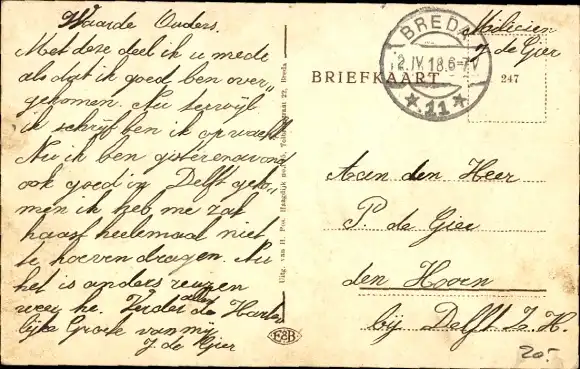 Waarde Ouders.
Met deze deel ik u mede
als dat ik goed ben over„
gekomen. Nu terwijl
ik schrijf ben ik op wacht
Nu ik ben gisterenavond
ook goed in Delft geko„
men ik heb me zak
haast heelemaal niet
te hoeven dragen. Nu
het is anders reuzen
weer he. Verder allen de Harte
lijke Groete van mij
J. de Gier
Uitg. van H. Pos, Haagdijk Breda
E&B
BREDA
2.IV.18.6-7V
★11★
BRIEFKAART
247
Milicien
J. de Gier
Aan den Heer
P. de Gier
den Hoorn
bij Delft Z. H.
20.-